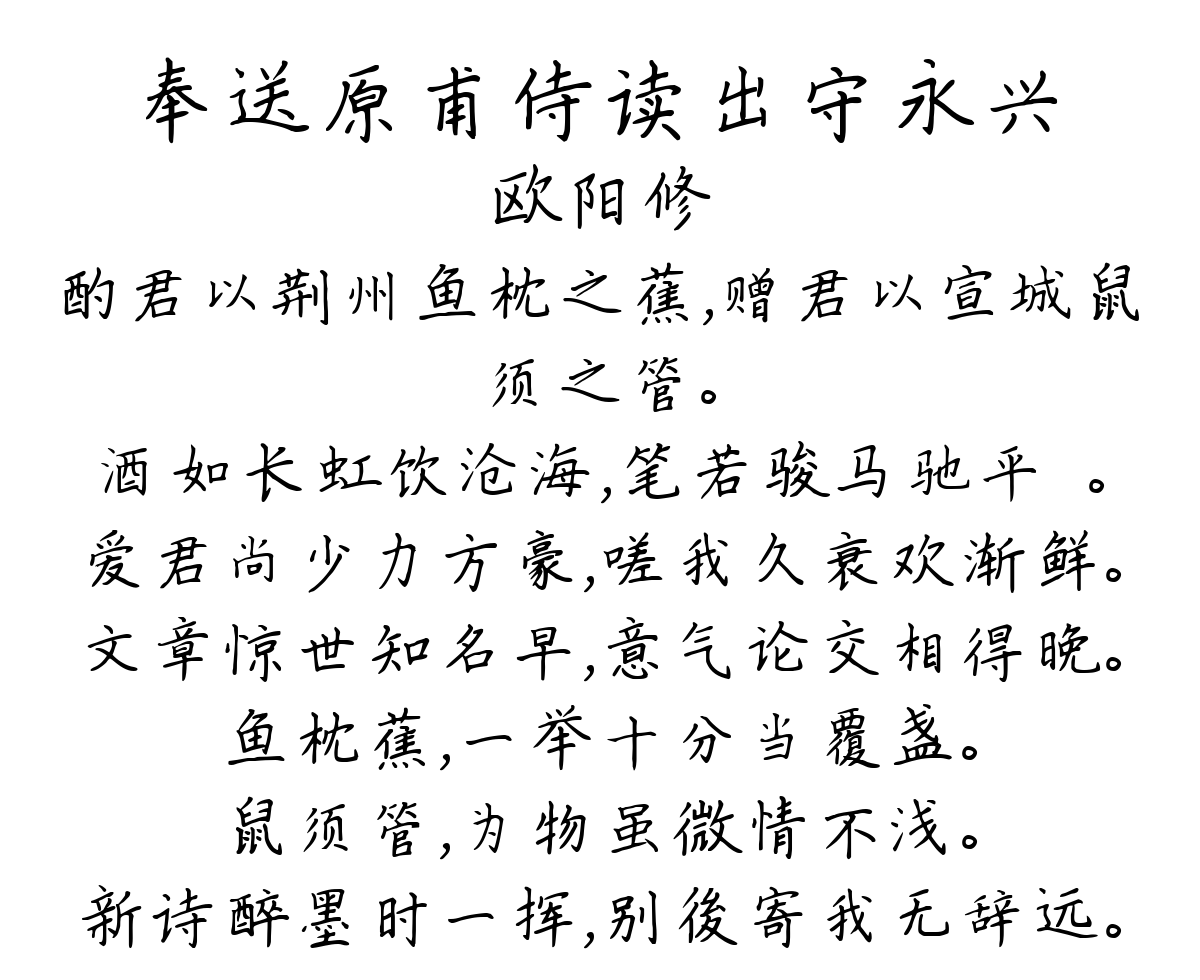 奉送原甫侍读出守永兴
欧阳修
酌君以荆州鱼枕之蕉,赠君以宣城鼠
须之管。
酒如长虹饮沧海,笔若骏马驰平 。
爱君尚少力方豪,嗟我久衰欢渐鲜。
文章惊世知名早,意气论交相得晚。
鱼枕蕉,一举十分当覆盏。
鼠须管,为物虽微情不浅。
新诗醉墨时一挥,别後寄我无辞远。